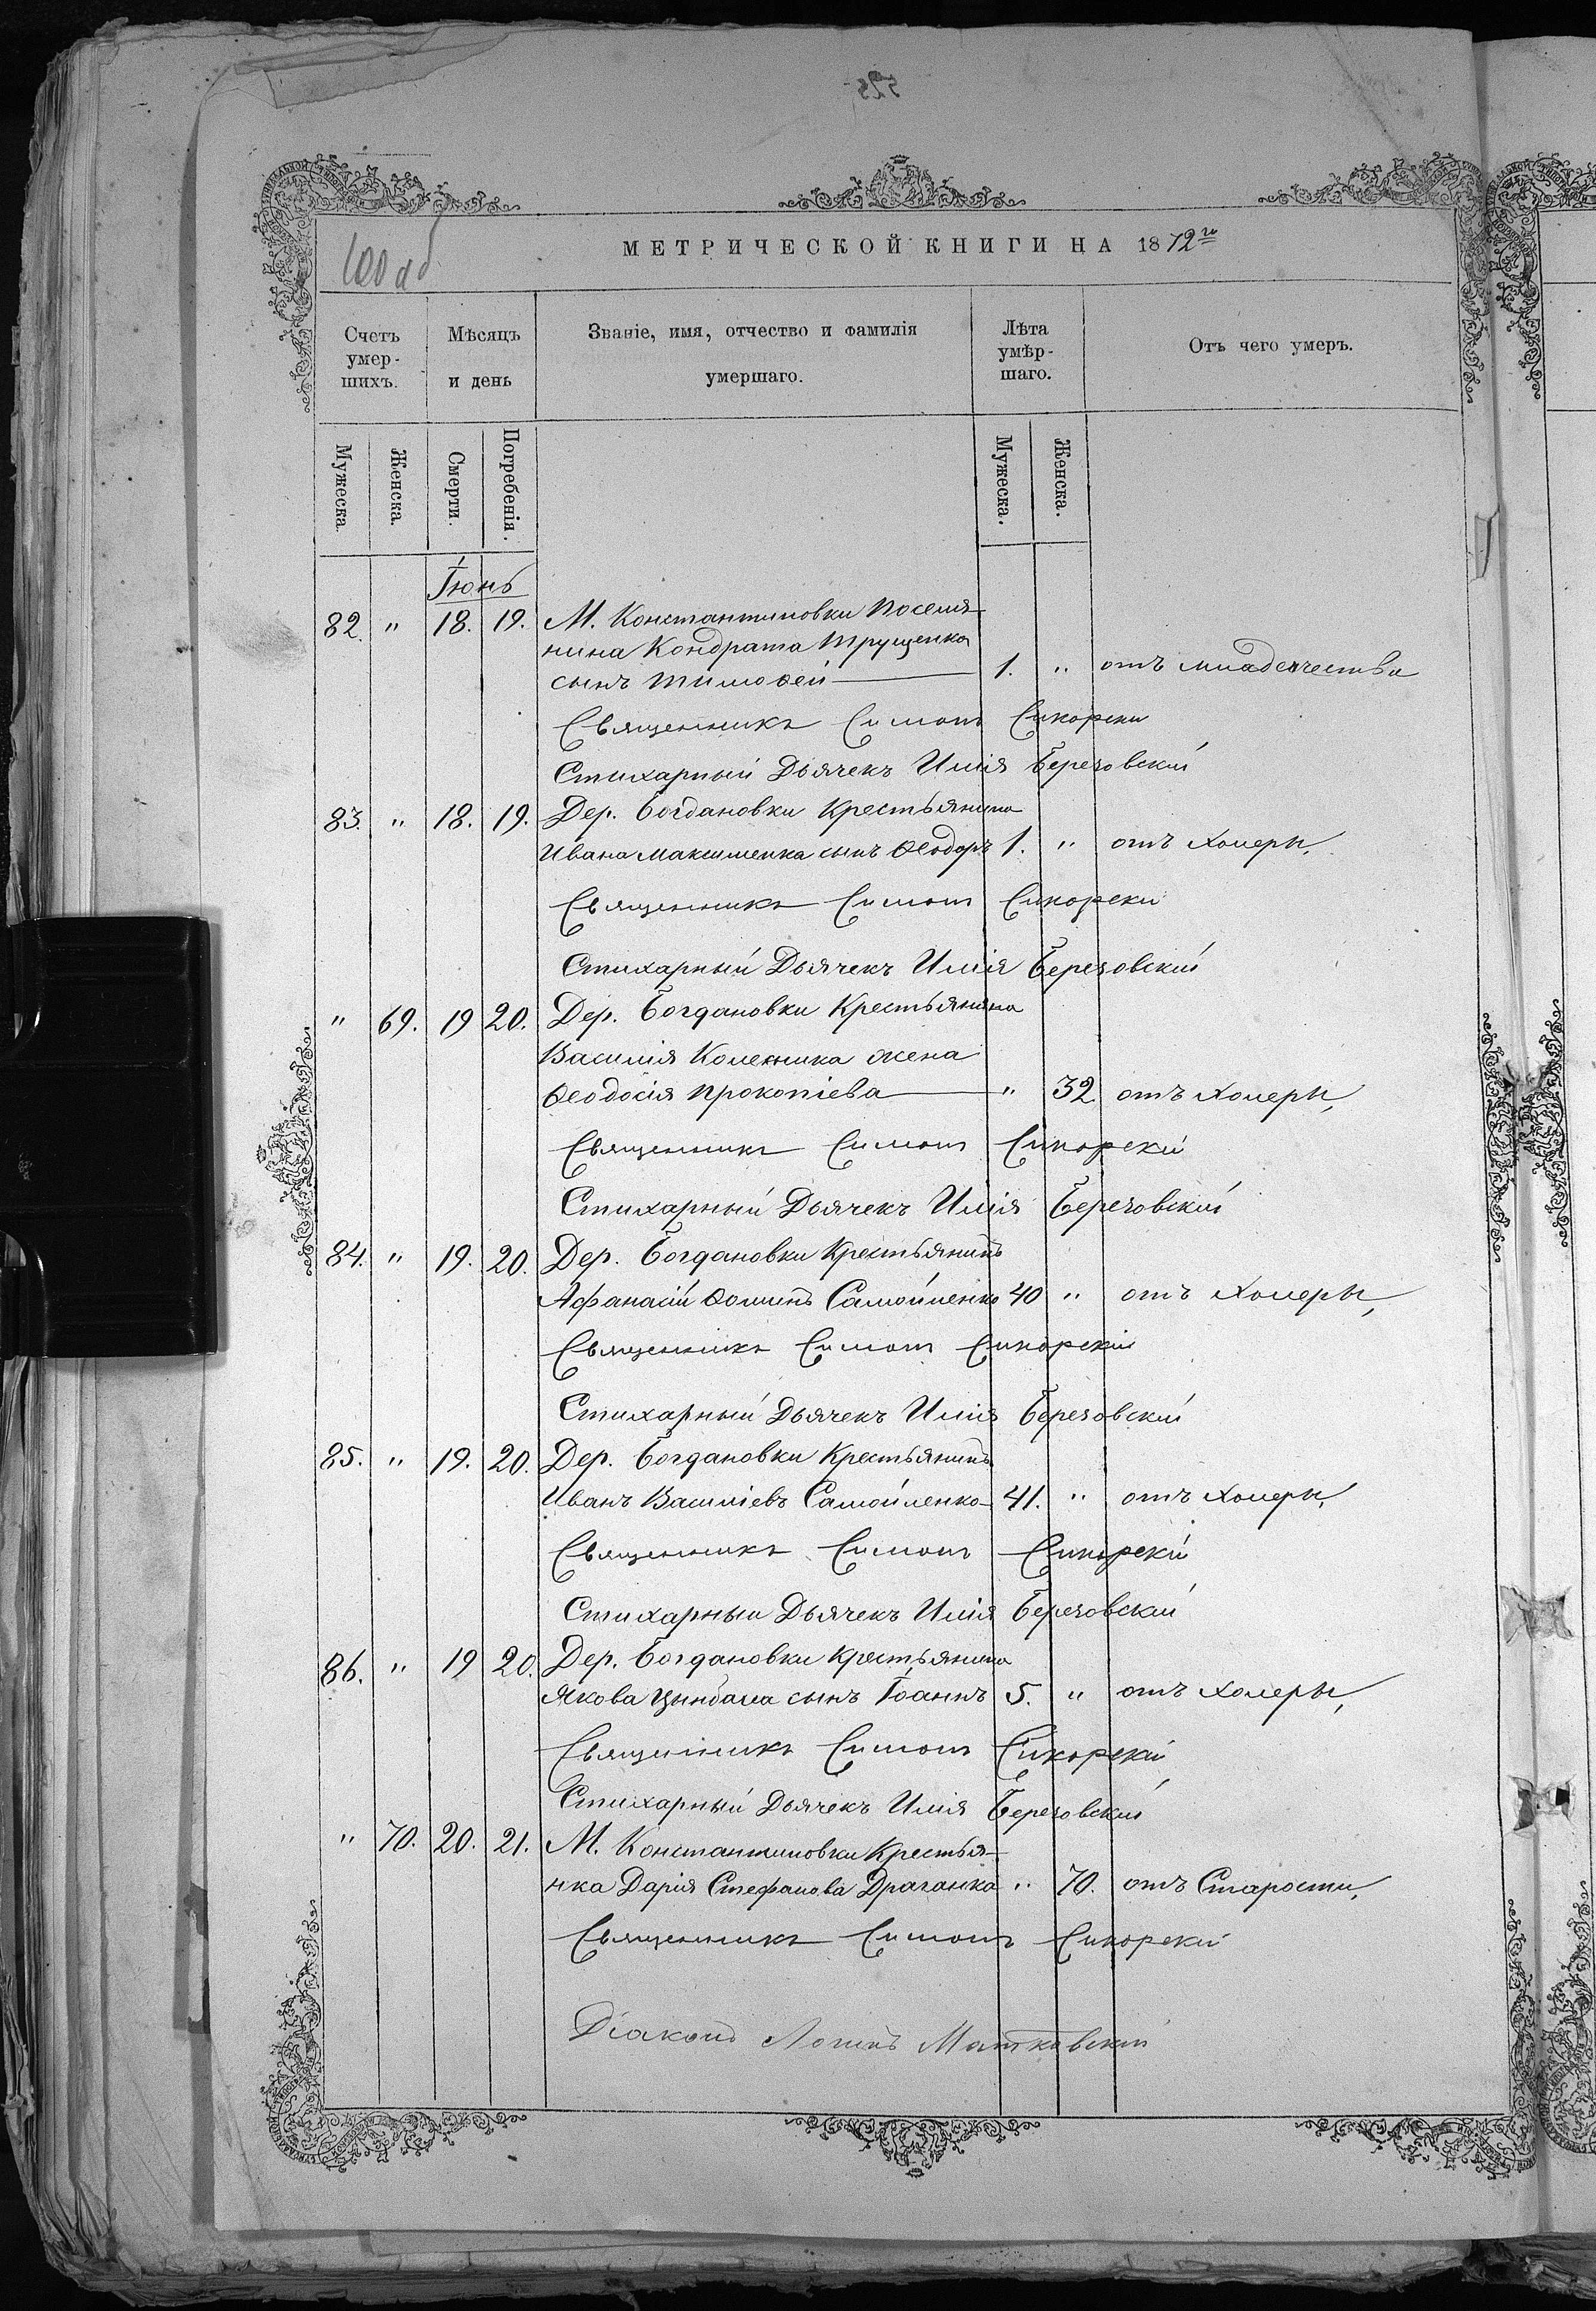 525
МЕТРИЧЕСКОЙ КНИГИ НА 1872го
Счетъ умер-шихъ.
Мѣсяцъ и день
Званіе, имя, отчество и фамилія умершаго.
Лѣта умѣр-шаго.
Отъ чего умеръ.
Мужеска. Женска. Смерти. Погребенія. Мужеска. Женска.
Іюнь
82. " 18. 19. М. Константиновки поселя-
нина Кондрата Трущенка
сынъ Тимоѳей — 1. " отъ младенчества
Священникъ Симонъ Сикорскій
Стихарный Дьячекъ Илія Березовскій
83. " 18. 19. Дер. Богдановки Крестьянина
Ивана Максименка сынъ Ѳеодоръ 1. " отъ холеры,
Священникъ Симонъ Сикорскій
Стихарный Дьячекъ Илія Березовскій
" 69. 19 20. Дер. Богдановки Крестьянина
Василія Колесника жена
Ѳеодосія Прокопіева — " 32 отъ холеры,
Священникъ Симонъ Сикорскій
Стихарный Дьячекъ Илія Березовскій
84. " 19. 20. Дер. Богдановки Крестьянинъ
Афанасій Ѳоминъ Самойленко 40 " отъ холеры,
Священникъ Симонъ Сикорскій
Стихарный Дьячекъ Илія Березовскій
85. " 19. 20. Дер. Богдановки Крестьянинъ
Иванъ Василіевъ Самойленко — 41. " отъ холеры,
Священникъ Симонъ Сикорскій
Стихарный Дьячекъ Илія Березовскій
86. " 19 20. Дер. Богдановки Крестьянина
Якова Цымбала сынъ Іоаннъ 5. " отъ холеры,
Священникъ Симонъ Сикорскій
Стихарный Дьячекъ Илія Березовскій
" 70. 20. 21. М. Константиновки Крестья-
нка Дарія Стефанова Драганка " 70. отъ Старости,
Священникъ Симонъ Сикорскій
Діаконъ Логинъ Матковскій